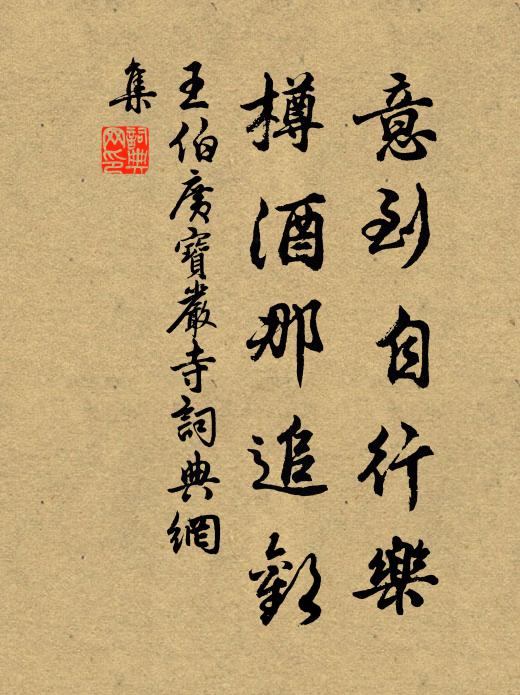 意到自行樂
樽酒那追歡
王伯廣寶巖寺詞典網
集
詞典網印